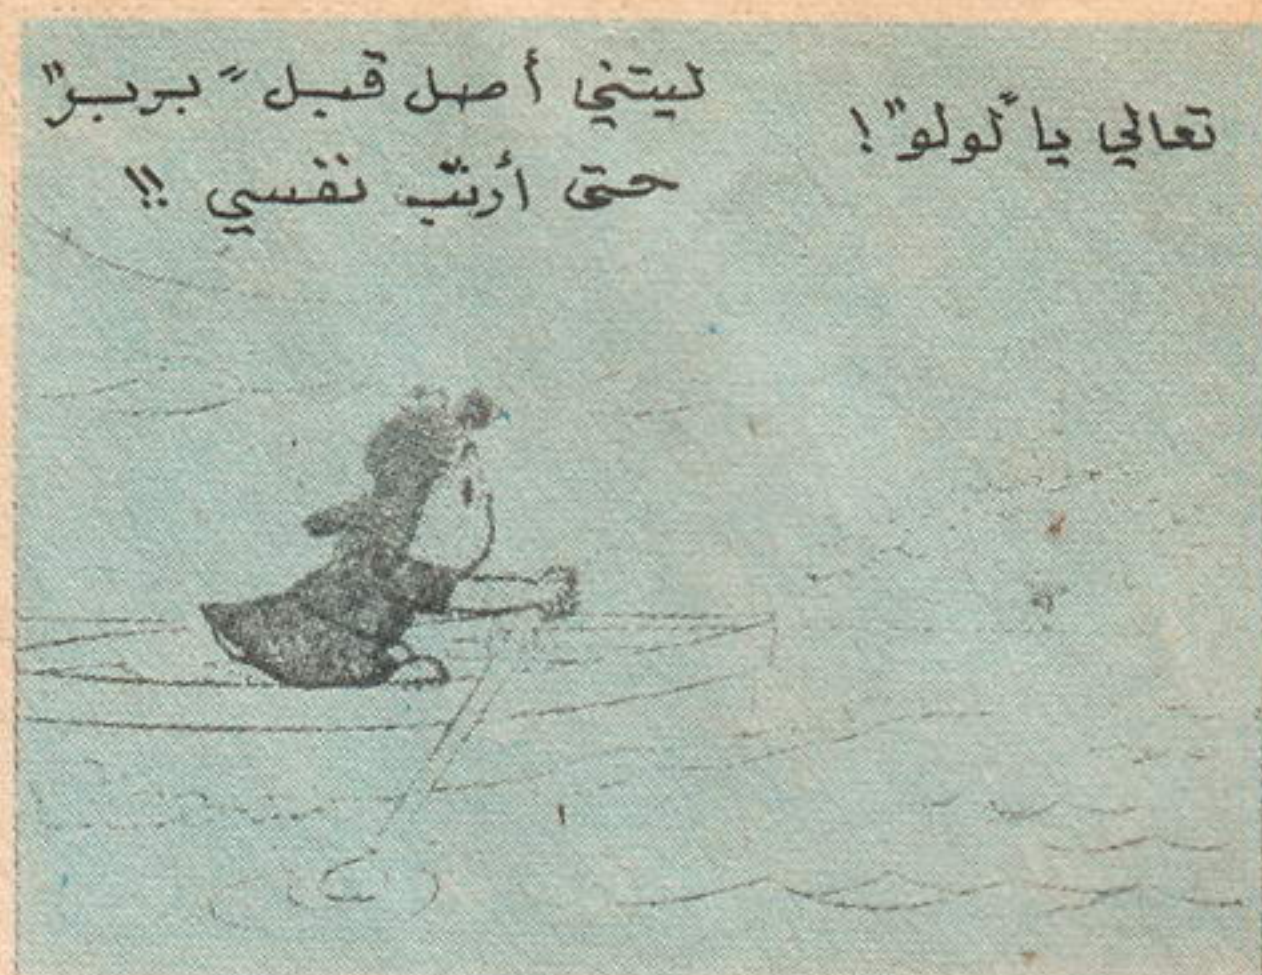 تعالي يا "لولو"!
ليتني أصل قبل "بربر"
حتى أرتّب نفسي !!